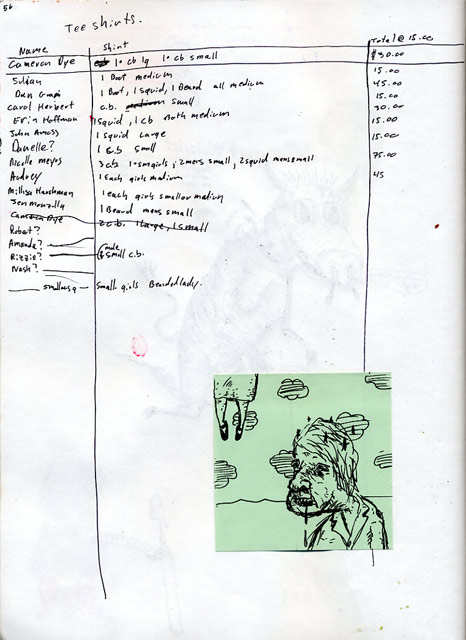 56
Tee shirts.
Name Shirt Total @ 15.00
Cameron Dye 1 cb lg 1 cb small $30.00
Sultan 1 Boot medium 15.00
1 Boot, 1 squid, 1 Beard all medium 45.00
Carol Herbert c.b. medium small 15.00
Erin Hoffman 1 squid, 1 cb both medium 30.00
John 1 squid Large 15.00
Danielle? 1 c.b. small 15.00
Nicolle 3 cb 1 sm girls, 2 mens small, 2 squid mens small 75.00
Audrey 1 each girls medium 45
Millisa Harshman
1 each girls small or medium
Jen 1 Beard mens small
Cameron Dye 2 c.b. 1 Large, 1 small
Robert?
Amanda? male
Rizzie? small c.b.
Nash?
small girls Bearded lady.